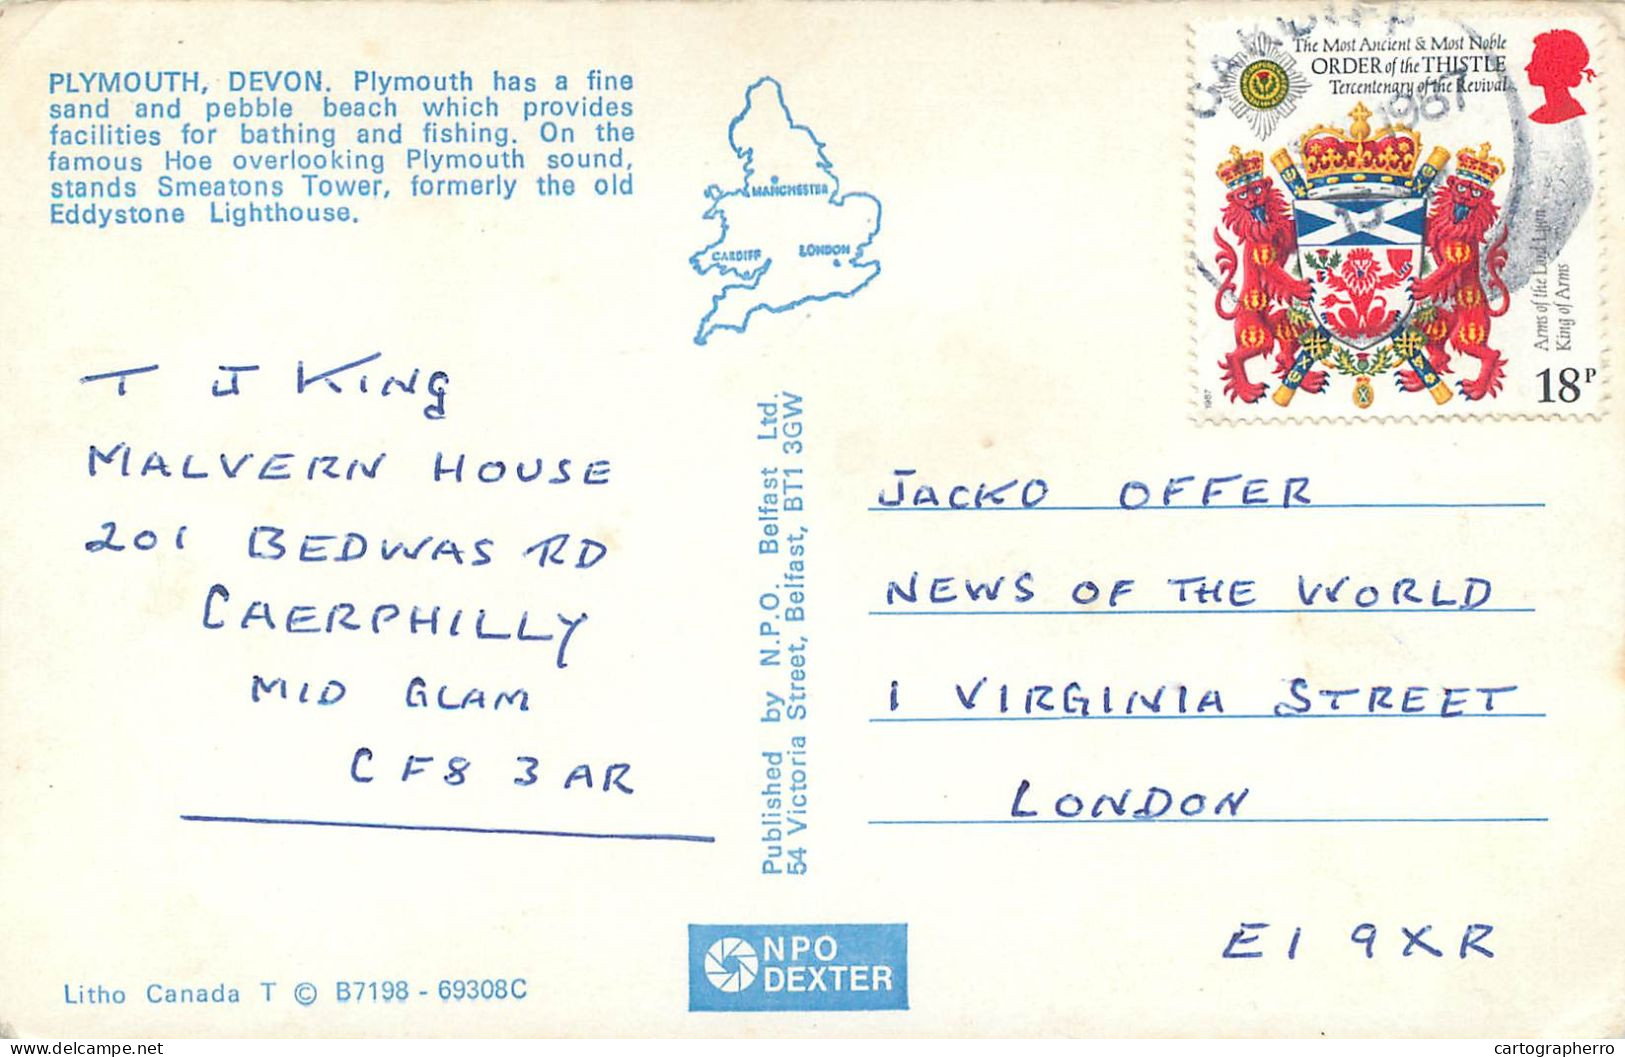 PLYMOUTH, DEVON. Plymouth has a fine
sand and pebble beach which provides
facilities for bathing and fishing. On the
famous Hoe overlooking Plymouth sound,
stands Smeatons Tower, formerly the old
Eddystone Lighthouse.
MANCHESTER
CARDIFF
LONDON
The Most Ancient & Most Noble
ORDER of the THISTLE
Tercentenary of the Revival
CARDIFF
1987
Arms of the Lord Lyon
King of Arms
1987
18P
T J KING
MALVERN HOUSE
201 BEDWAS RD
CAERPHILLY
MID GLAM
CF8 3AR
Published by N.P.O. Belfast Ltd.
54 Victoria Street, Belfast, BT1 3GW
JACKO OFFER
NEWS OF THE WORLD
1 VIRGINIA STREET
LONDON
E1 9XR
NPO
DEXTER
Litho Canada T © B7198 - 69308C
Delcampe.net
cartographerro